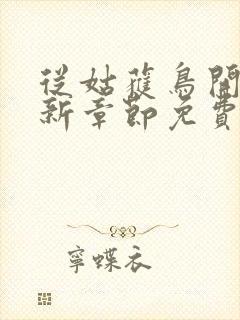 從姑蘿鳥開
新章節免費
寧蝶衣